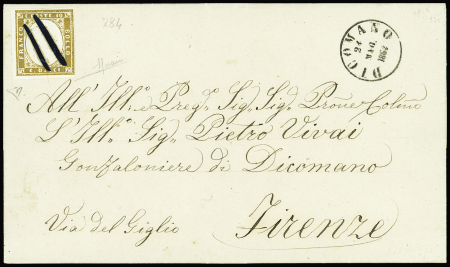 284
DICOMANO
FRANCO
BOLLO
All' Ill.mo e Preg. Sig. Sig. Prone Colmo
L' Ill.mo Sig. Pietro Vivai
Gonfaloniere di Dicomano
Via del Giglio
Firenze